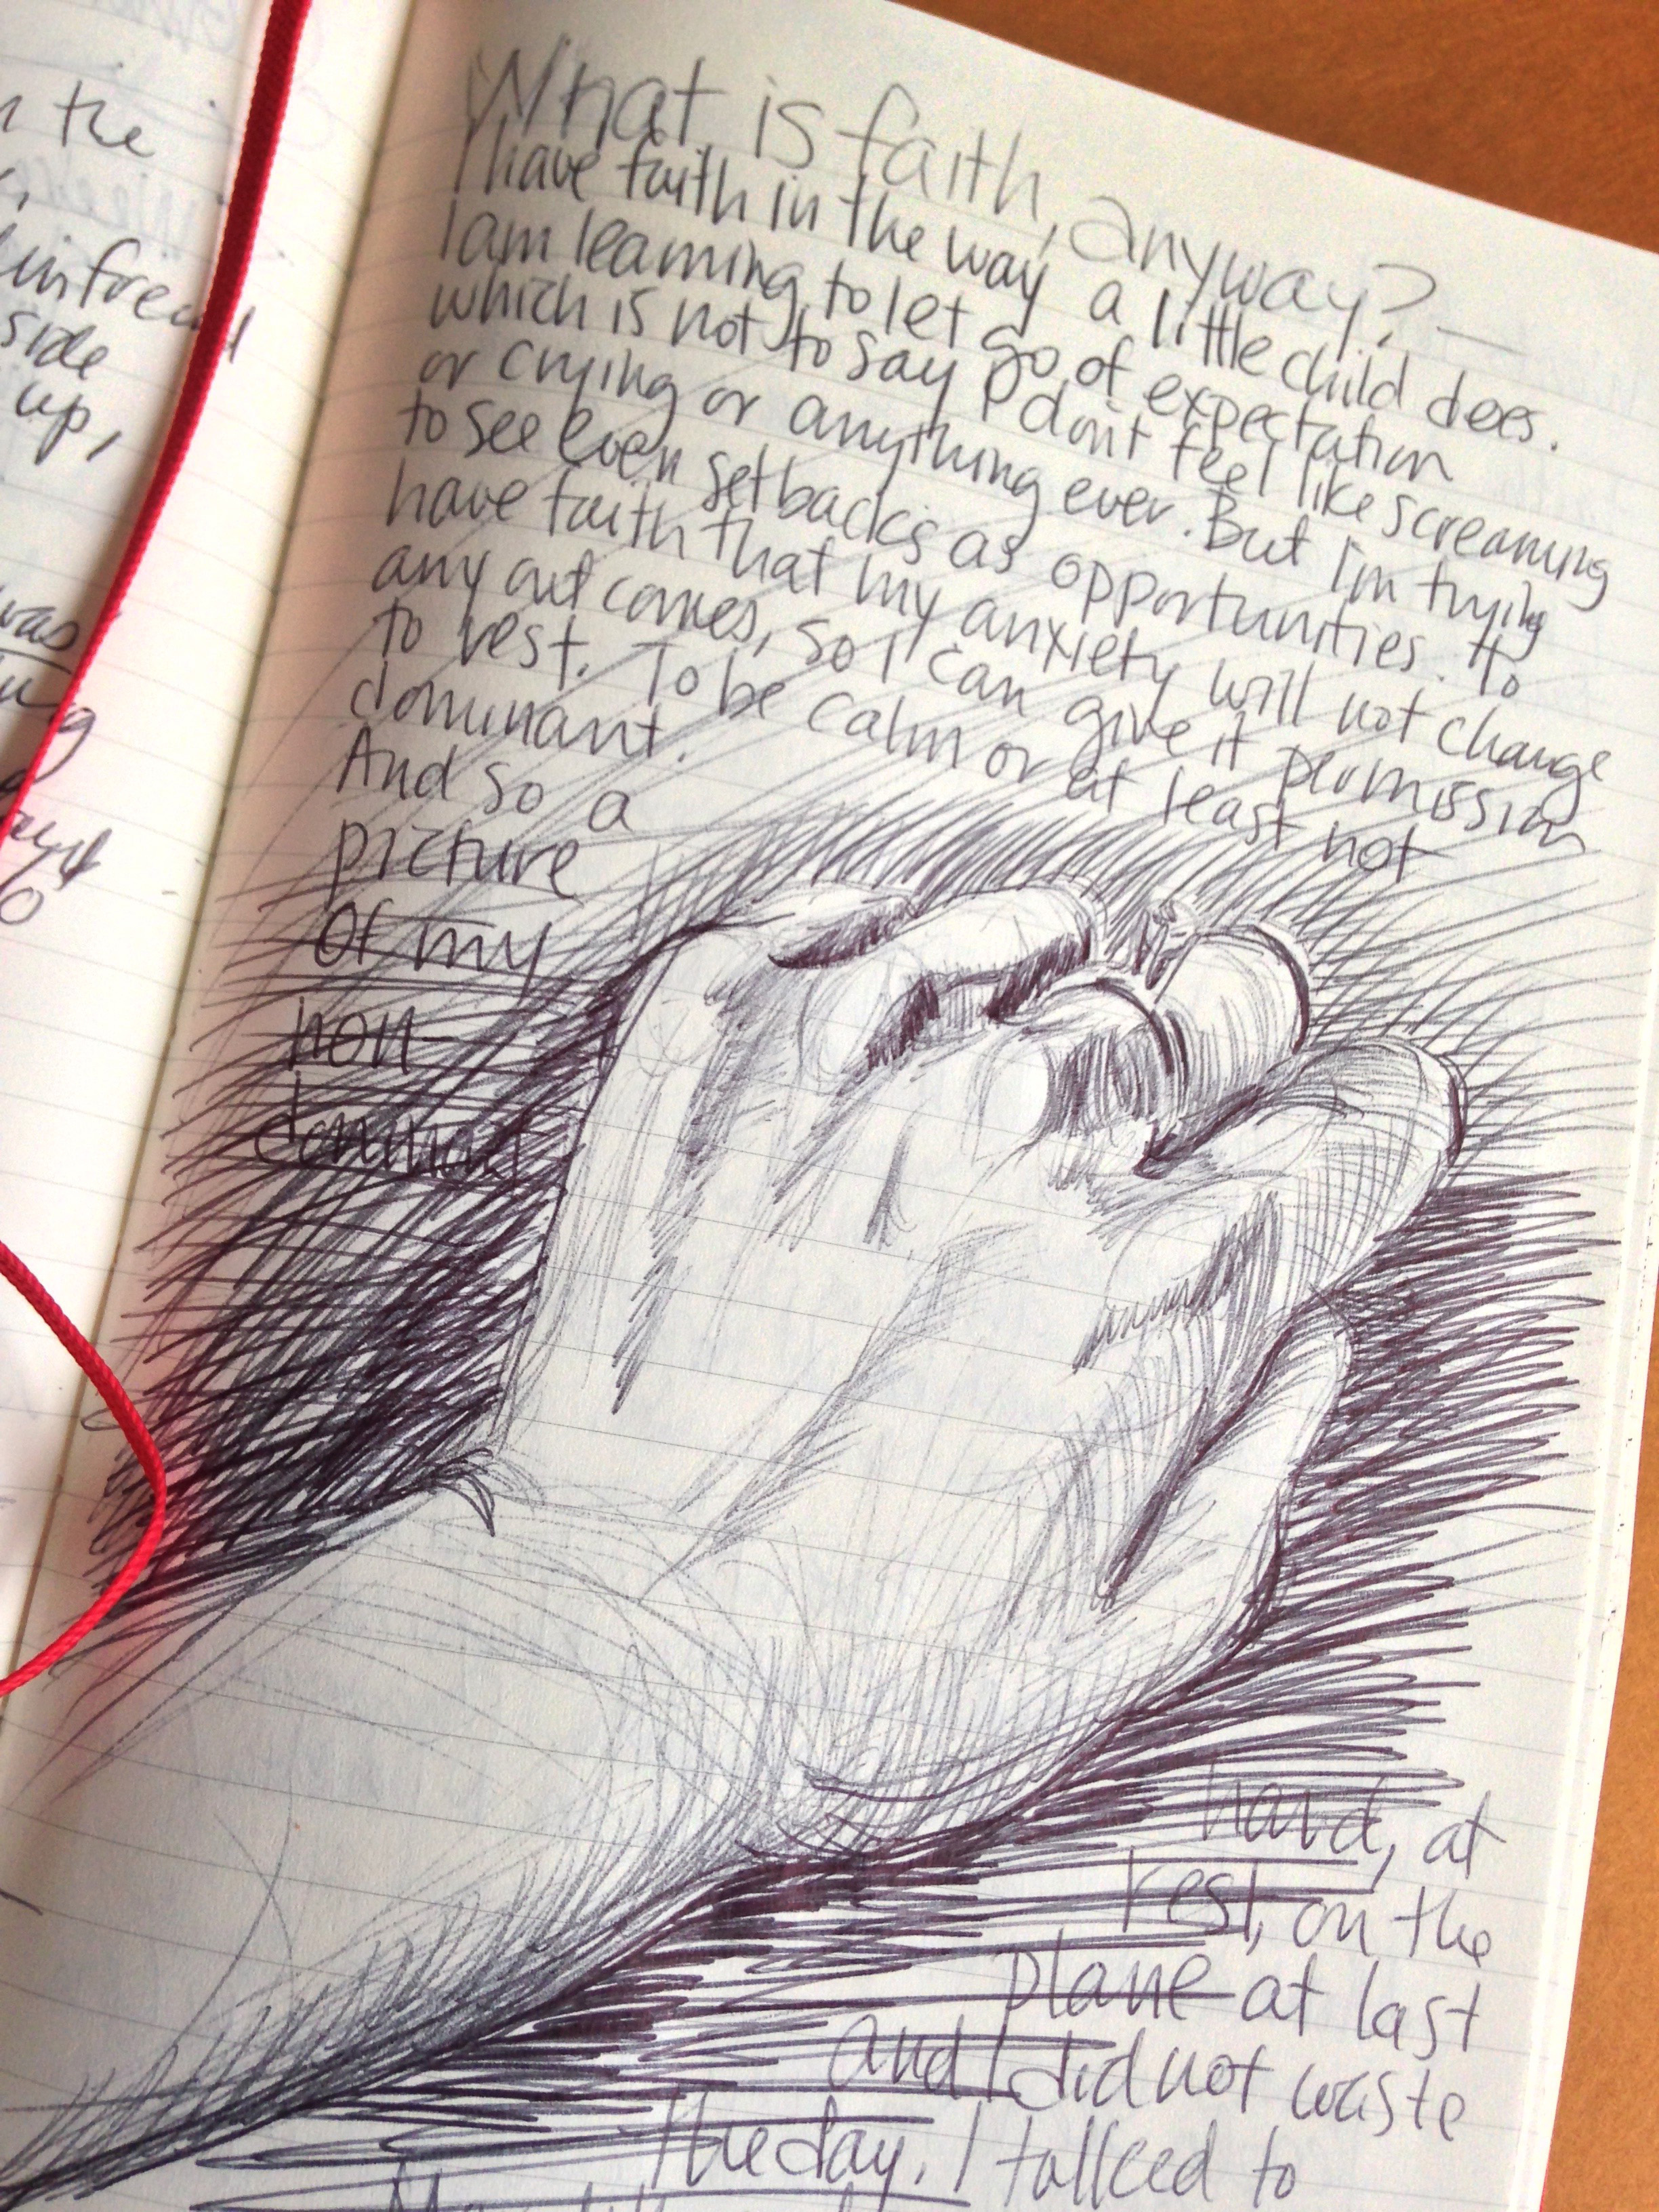 n the
inforced
side
up,
was
to
What is faith, anyway?—
I have faith in the way a little child does.
I am learning to let go of expectation
which is not to say I don't feel like screaming
or crying or anything ever. But I'm trying
to see even setbacks as opportunities. to
have faith that my anxiety will not change
any outcomes, so I can give it permission
to rest. To be calm or at least not
dominant.
And so a
picture
of my
non-
dominant
hand, at
rest, on the
plane at last
and I did not waste
the day. I talked to